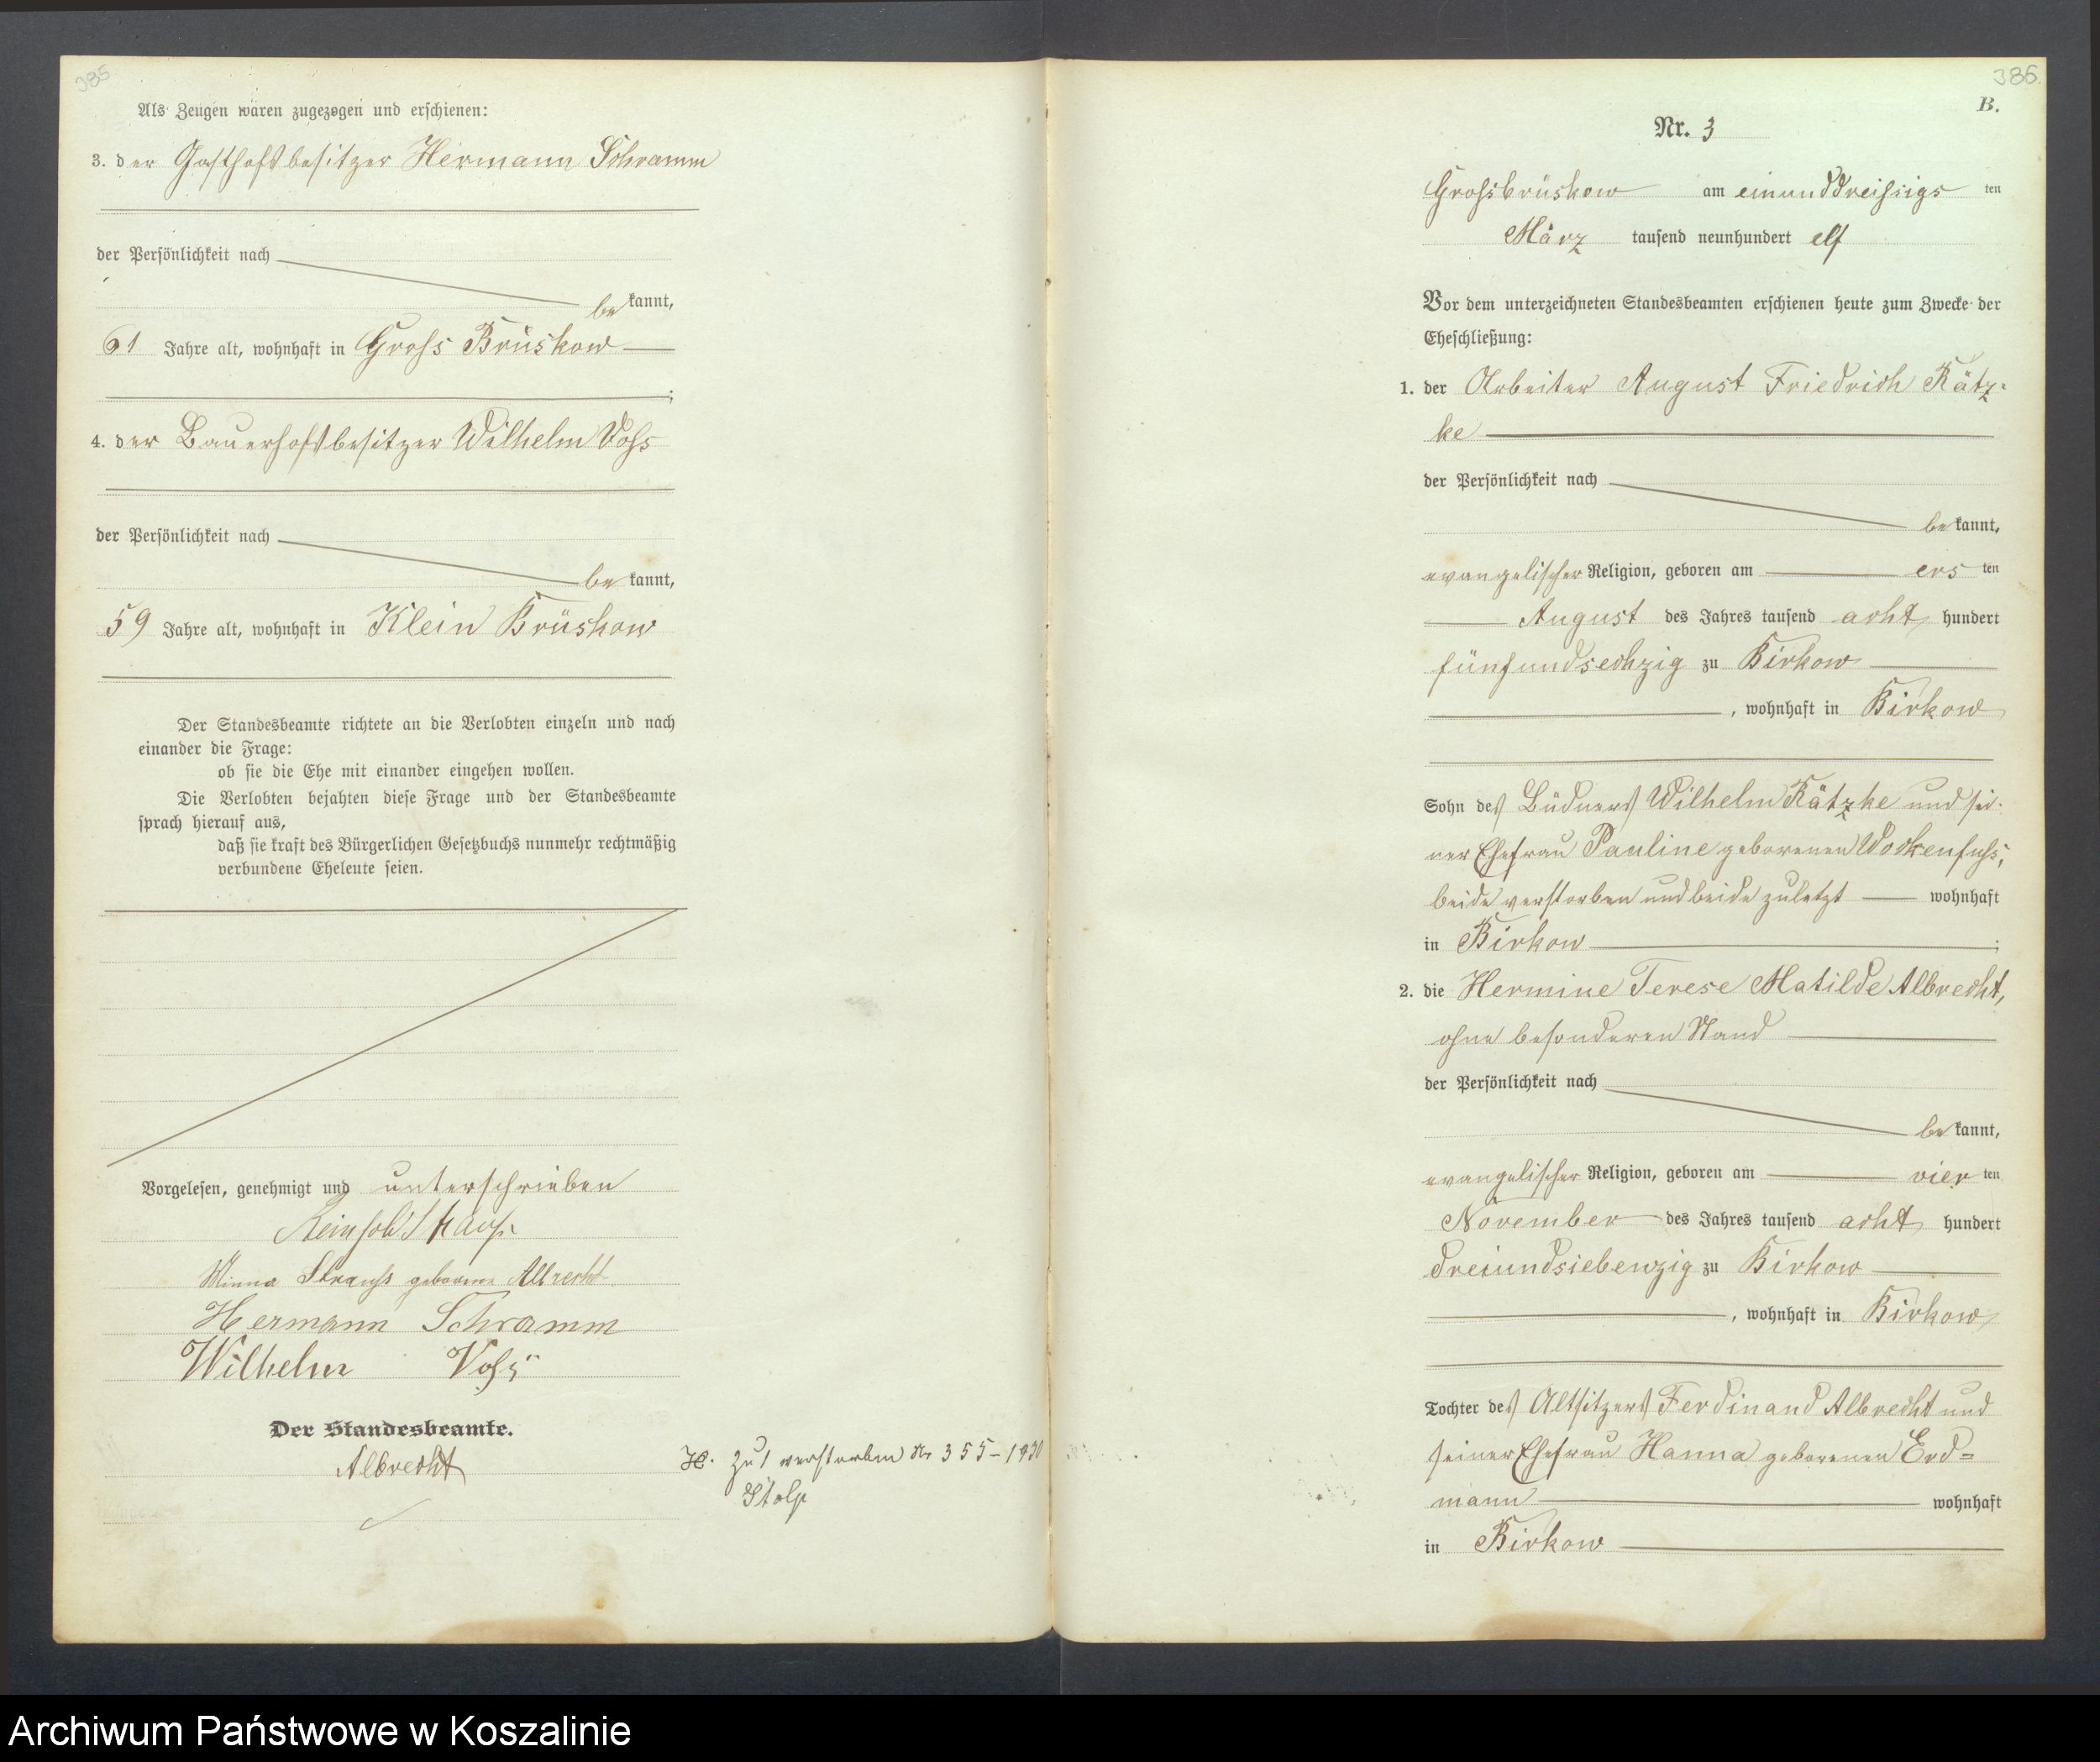 385
Als Zeugen waren zugezogen und erschienen:
3. der Gasthofsbesitzer Hermann Schramm
der Persönlichkeit nach
bekannt,
61 Jahre alt, wohnhaft in Gross Brüskow
;
4. der Bauerhofsbesitzer Wilhelm Voss
der Persönlichkeit nach
bekannt,
59 Jahre alt, wohnhaft in Klein Brüskow
Der Standesbeamte richtete an die Verlobten einzeln und nach
einander die Frage:
ob sie die Ehe mit einander eingehen wollen.
Die Verlobten bejahten diese Frage und der Standesbeamte
sprach hierauf aus,
daß sie kraft des Bürgerlichen Gesetzbuchs nunmehr rechtmäßig
verbundene Eheleute seien.
Vorgelesen, genehmigt und unterschrieben
Reinhold Strauss
Minna Strauss geborene Albrecht
Hermann Schramm
Wilhelm Voss
Der Standesbeamte.
Albrecht
H. Zu 1 verstorben Nr 355-1930
Stolp
386.
B.
Nr. 3
Grossbrüskow am einunddreissigsten
März tausend neunhundert elf
Vor dem unterzeichneten Standesbeamten erschienen heute zum Zwecke der
Eheschließung:
1. der Arbeiter August Friedrich Kätz-
ke
der Persönlichkeit nach
bekannt,
evangelischer Religion, geboren am ersten
August des Jahres tausend acht hundert
fünfundsechzig zu Birkow
, wohnhaft in Birkow
Sohn des Büdners Wilhelm Kätzke und sei-
ner Ehefrau Pauline geborenen Wockenfuss,
beide verstorben und beide zuletzt wohnhaft
in Birkow ;
2. die Hermine Terese Matilde Albrecht,
ohne besonderen Stand
der Persönlichkeit nach
bekannt,
evangelischer Religion, geboren am vierten
November des Jahres tausend acht hundert
dreiundsiebenzig zu Birkow
, wohnhaft in Birkow
Tochter des Altsitzers Ferdinand Albrecht und
seiner Ehefrau Hanna geborenen Erd=
mann wohnhaft
in Birkow
Archiwum Państwowe w Koszalinie